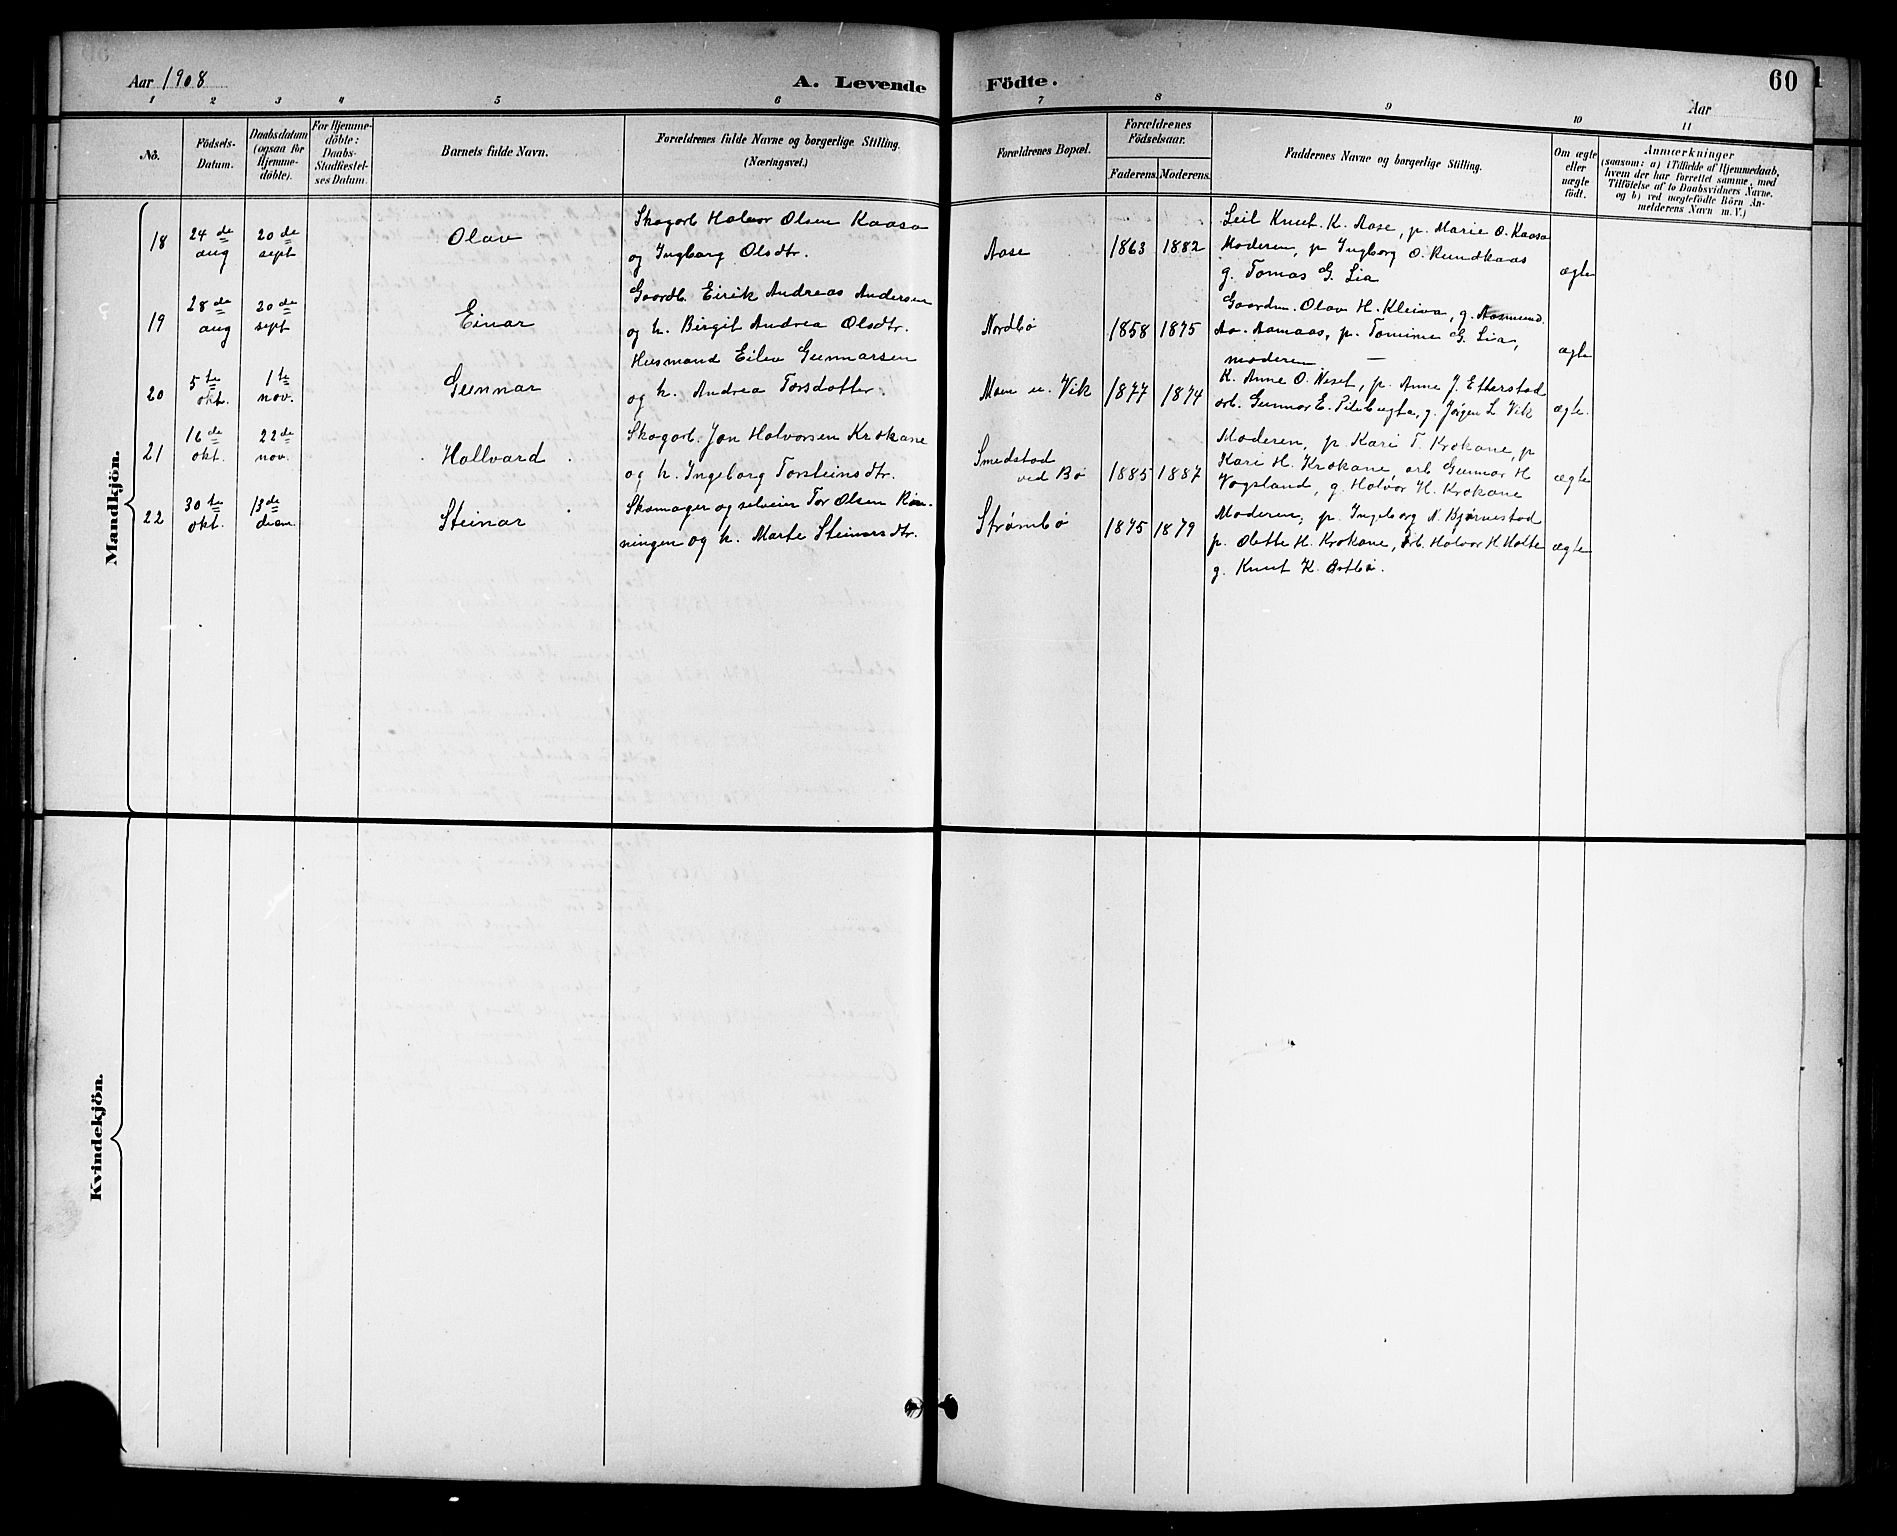 Aar 1908
A. Levende
Födte.
Aar
60
1 2 3 4 5 6 7 8 9 10 11
No.
Födsels-
Datum.
Daabsdatum
(ogsaa for
Hjemme-
döbte).
For Hjemme-
döbte:
Daabs-
Stadfæstel-
ses Datum.
Barnets fulde Navn.
Forældrenes fulde Navne og borgerlige Stilling.
(Næringsvei.)
Forældrenes Bopæl.
Forældrenes
Födselsaar.
Faderens.
Moderens.
Faddernes Navne og borgerlige Stilling.
Om ægte
eller
uægte
födt.
Anmærkninger
(saasom: a) i Tilfælde af Hjemmedaab,
hvem der har forrettet samme, med
Tilföielse af to Daabsvidners Navne.
og b) ved uægtefödte Börn An-
melderens Navn m. V.)
Mandkjön.
18
24 de
aug
20 de
sept
Olav
Skogarb. Halvor Olsen Kaasa
og Ingborg Olsdtr.
Aase
1863 1882
Leil. Knut K. Aase, p. Marie O. Kaasa
Moderen, p Ingborg O. Rundkaas
g. Tomas G. Lia
ægte
19
28 de
aug
20 de
sept
Einar
Gaardb. Eirik Andreas Andersen
og h. Birgit Andrea Olsdtr.
Nordbö
1858 1875
Gaardm. Olav H. Kleiva, g. Aasmund
Aa. Aamaas, p. Tomine G. Lia,
moderen —
ægte
20
5 te
okt.
1 te
nov.
Gunnar
Husmand Eilev Gunnarsen
og h. Andrea Torsdotter.
Moen u. Vik
1877 1874
K. Anne O. Neset, p. Anne J. Etterstad
arb. Gunnar E. Pilebugta, g. Jörgen L. Vik
ægte.
21
16 de
okt.
22 de
nov.
Hallvard
Skogarb. Jon Halvorsen Krokane
og h. Ingeborg Torsteinsdtr.
Smedstad
ved Bö
1885 1887
Moderen, p. Kari T. Krokane, p
Kari H. Krokane, arb Gunnar H
Vogsland, g. Halvor H. Krokane
ægte
22
30 te
okt.
13 de
desm
Steinar
Skomager og selveier Tor Olsen Rön-
ningen og h. Marte Steinarsdtr.
Strömbö
1875 1879
Moderen, p. Ingeborg N. Bjørnestad
p. Olette H. Krokane, arb. Halvor H Holte
g. Knut K. Østbö.
ægte
Kvindekjön.